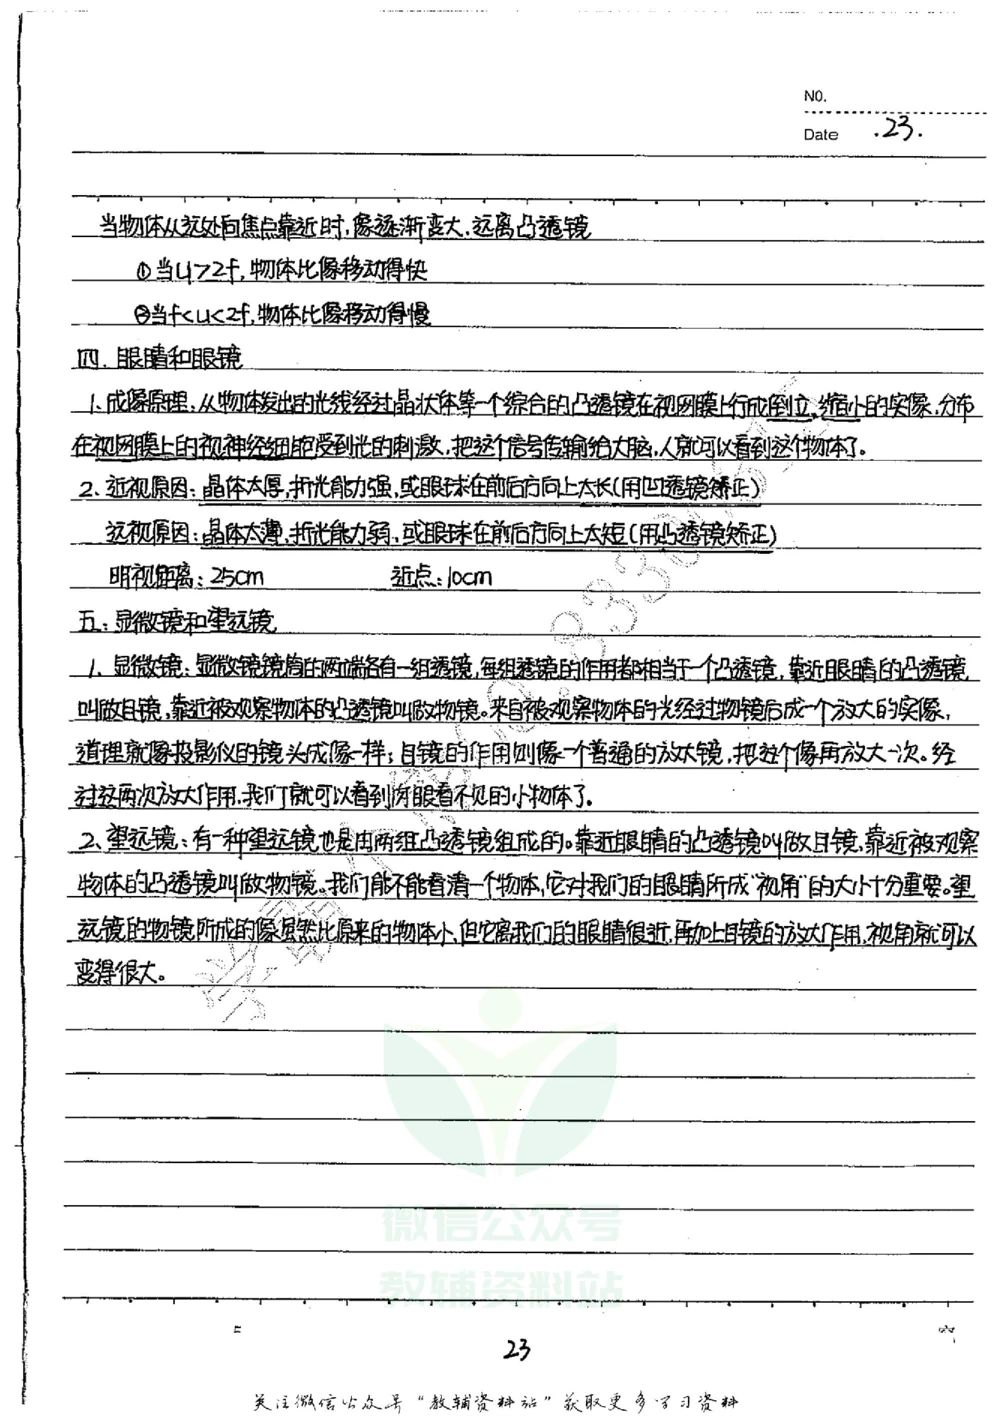 NO.
Date .23.
当物体从远处向焦点靠近时,像逐渐变大,远离凸透镜
①当u>2f,物体比像移动得快
②当f<u<2f,物体比像移动得慢
四.眼睛和眼镜
1.成像原理:从物体发出的光线经过晶状体等一个综合的凸透镜在视网膜上行成倒立,缩小的实像,分布
在视网膜上的视神经细胞受到光的刺激,把这个信号传输给大脑,人就可以看到这个物体了。
2.近视原因:晶体太厚,折光能力强,或眼球在前后方向上太长(用凹透镜矫正)
远视原因:晶体太薄,折光能力弱,或眼球在前后方向上太短(用凸透镜矫正)
明视距离:25cm 近点:10cm
五:显微镜和望远镜
1.显微镜:显微镜镜筒的两端各有一组透镜,每组透镜的作用都相当于一个凸透镜,靠近眼睛的凸透镜
叫做目镜,靠近被观察物体的凸透镜叫做物镜。来自被观察物体的光经过物镜后成一个放大的实像,
道理就像投影仪的镜头成像一样;目镜的作用则像一个普通的放大镜,把这个像再放大一次。经
过这两次放大作用,我们就可以看到肉眼看不见的小物体了。
2、望远镜:有一种望远镜也是由两组凸透镜组成的。靠近眼睛的凸透镜叫做目镜,靠近被观察
物体的凸透镜叫做物镜。我们能不能看清一个物体,它对我们的眼睛所成“视角”的大小十分重要。望
远镜的物镜所成的像虽然比原来的物体小,但它离我们的眼睛很近,再加上目镜的放大作用,视角就可以
变得很大。
微信公众号
教辅资料站
23
关注微信公众号“教辅资料站”获取更多学习资料